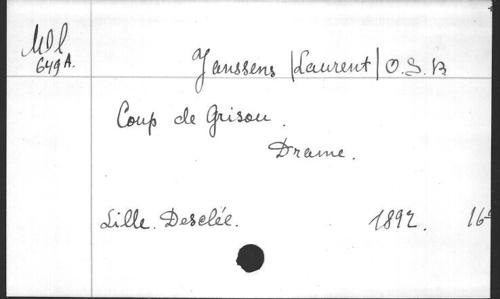 Ml
649A.
Janssens |Laurent| O.S.B
Coup de Grisou.
Drame.
Lille. Desclée. 1892. 16°